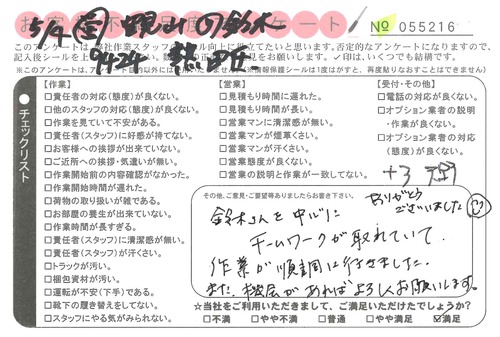 5/4 (金)
No 055216
このアンケートは、
記入後シールを
チェックリスト
【作業】
□責任者の対応(態度)が良くない。
□他のスタッフの対応(態度)が良くない。
□作業を見ていて不安がある。
□責任者(スタッフ)に好感が持てない。
□お客様への挨拶が出来ていない。
□ご近所への挨拶・気遣いが無い。
□作業開始前の内容確認がなかった。
□作業開始時間が遅れた。
□荷物の取り扱いが雑である。
□お部屋の養生が出来ていない。
□作業時間が長すぎる。
□責任者(スタッフ)に清潔感が無い。
□責任者(スタッフ)が汗くさい。
□トラックが汚い。
□梱包資材が汚い。
□運転が不安(下手)である。
□靴下の履き替えをしてない。
□スタッフにやる気がみられない。
【営業】
□見積もり時間に遅れた。
□見積もり時間が長い。
□営業マンに清潔感が無い。
□営業マンが煙草くさい。
□営業マンが汗くさい。
□営業態度が良くない。
□営業の説明と作業が一致してない。
【受付・その他】
□電話の対応が良くない。
□オプション業者の説明
・作業が良くない。
□オプション業者の対応
(態度)が良くない。
その他、ご意見・ご要望等ありましたらお書き下さい。
ありがとう
ございました
鈴木さんを中心に
チームワークが取れていて
作業が順調に行きました。
また、機会があればよろしくお願いします。
☆当社をご利用いただきまして、ご満足いただけたでしょうか?
□不満 □やや不満 □普通 □やや満足 ☑満足